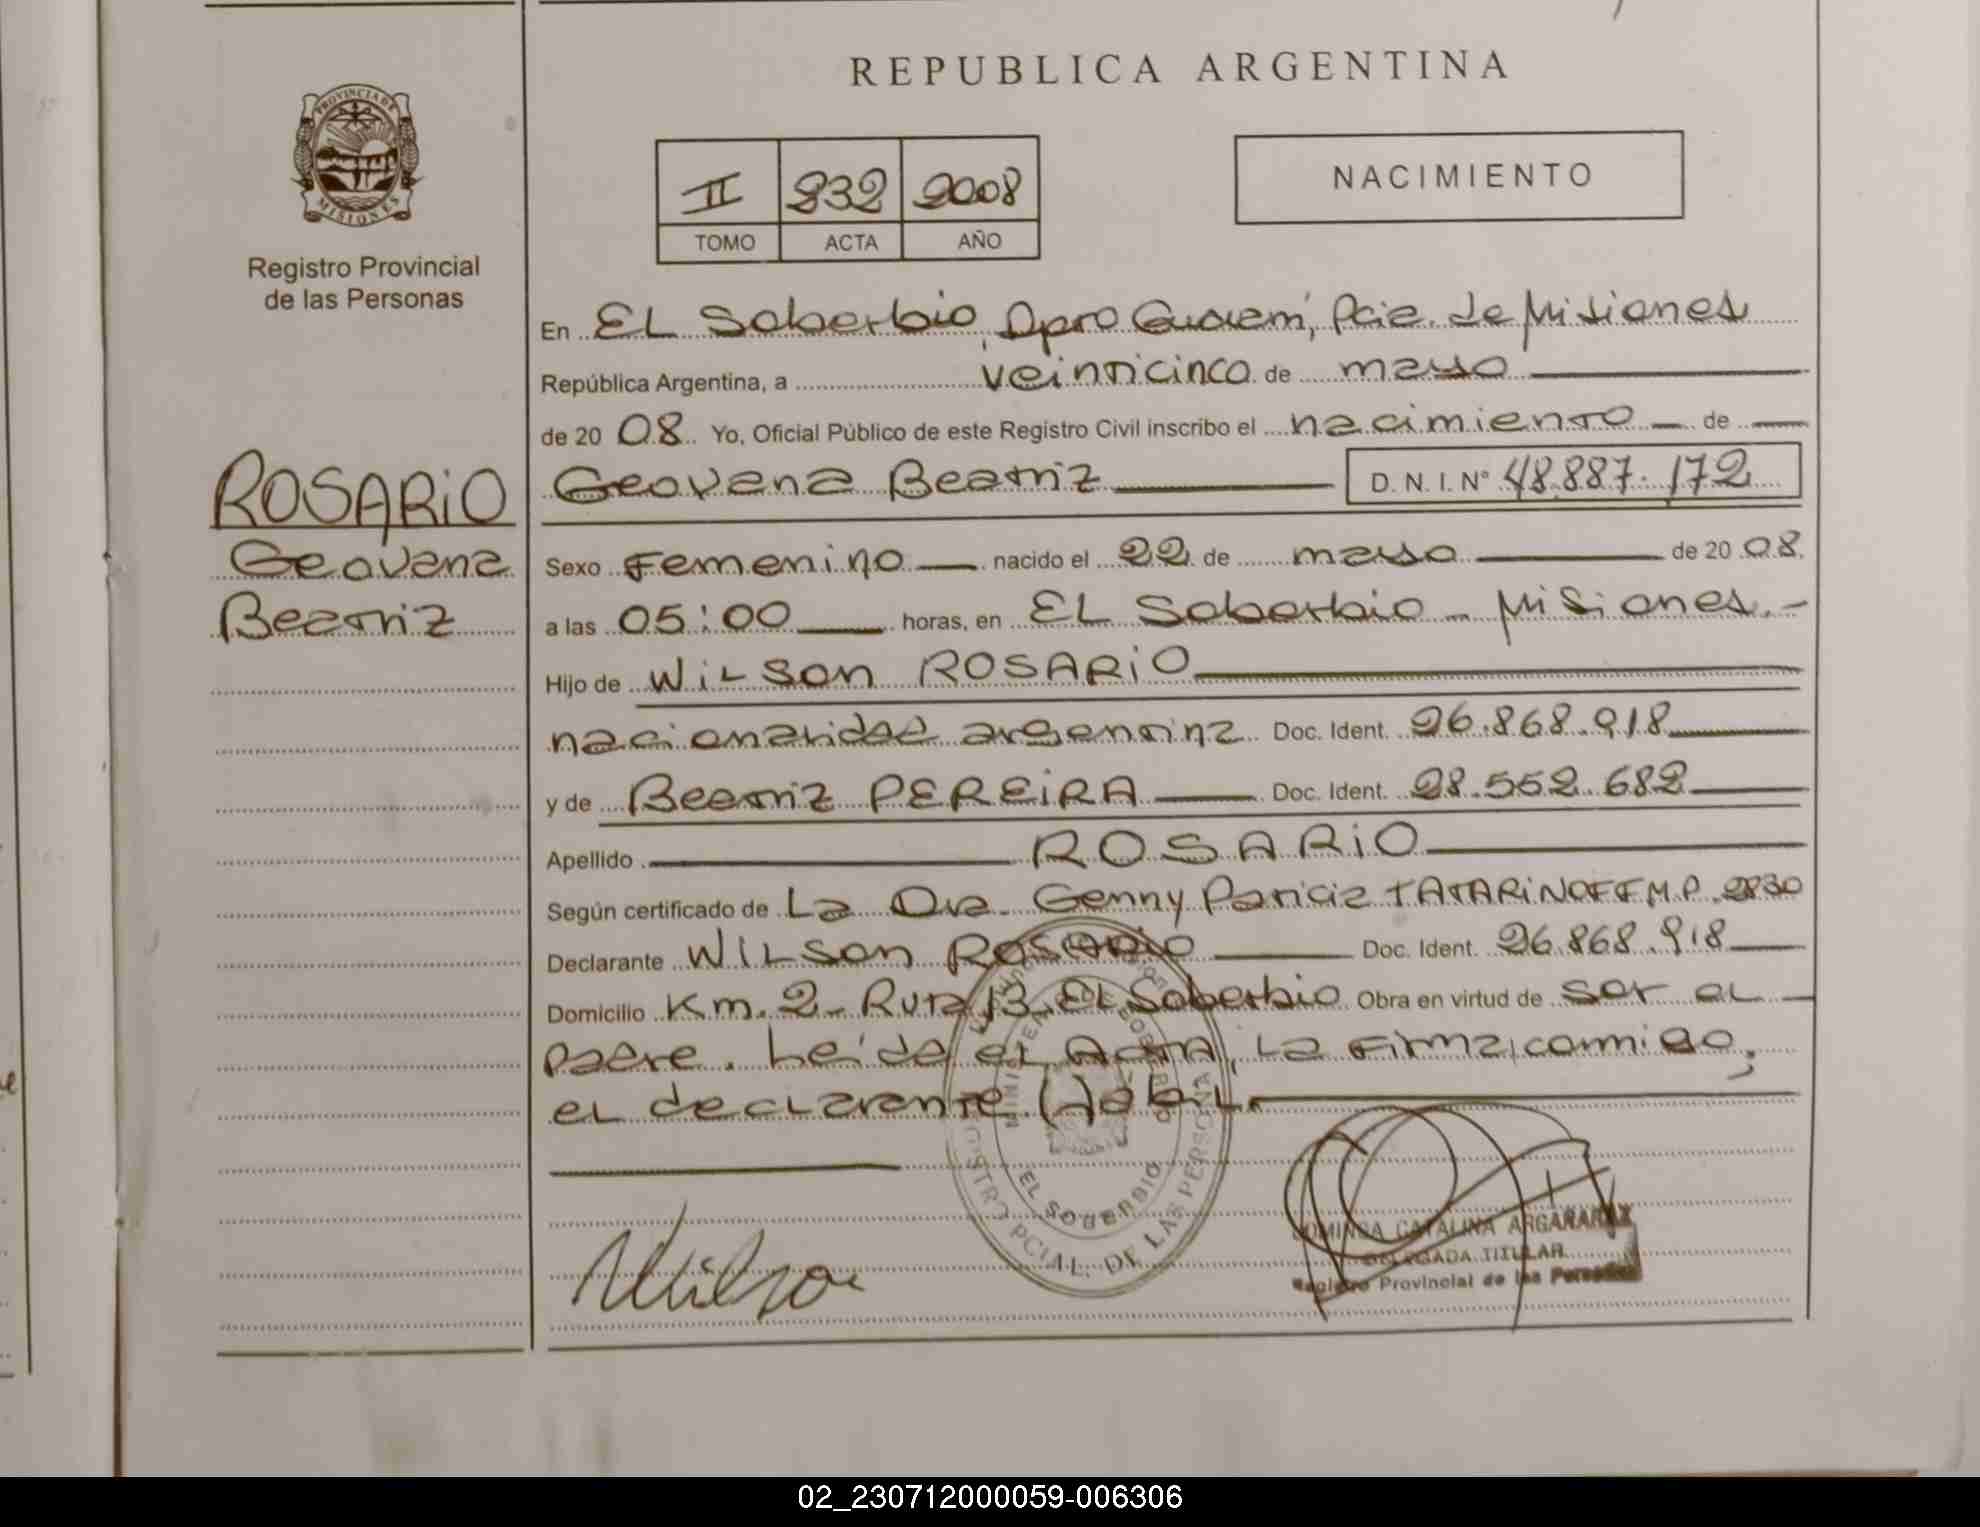 REPUBLICA ARGENTINA
PROVINCIA DE
MISIONES
Registro Provincial
de las Personas
II 232 2008
TOMO ACTA AÑO
NACIMIENTO
En EL Soberbio, Dpto Guaraní, Pcia. de Misiones
República Argentina, a veinticinco de mayo
de 20 08 Yo, Oficial Público de este Registro Civil inscribo el nacimiento de
Geovana Beatriz D. N. I. Nº 48.887.172
ROSARIO
Geovana
Beatriz
Sexo Femenino nacido el 22 de mayo de 20 08.
a las 05:00 horas, en EL Soberbio - Misiones.-
Hijo de Wilson ROSARIO
nacionalidad argentina Doc. Ident. 26.868.918
y de Beatriz PEREIRA Doc. Ident. 28.552.682
Apellido ROSARIO
Según certificado de La Dra. Genny Patricia TATARINOFF M.P. 2830
Declarante Wilson Rosario Doc. Ident. 26.868.918
Domicilio Km. 2 - Ruta 13, EL Soberbio Obra en virtud de ser el
padre. Leída el Acta, la firma conmigo,
el declarante hábil.
EL SOBERBIO
PCIAL. DE LAS PERSONAS
Wilson
CATALINA ARGAÑARAZ
DELEGADA TITULAR
Registro Provincial de las Personas
02_230712000059-006306